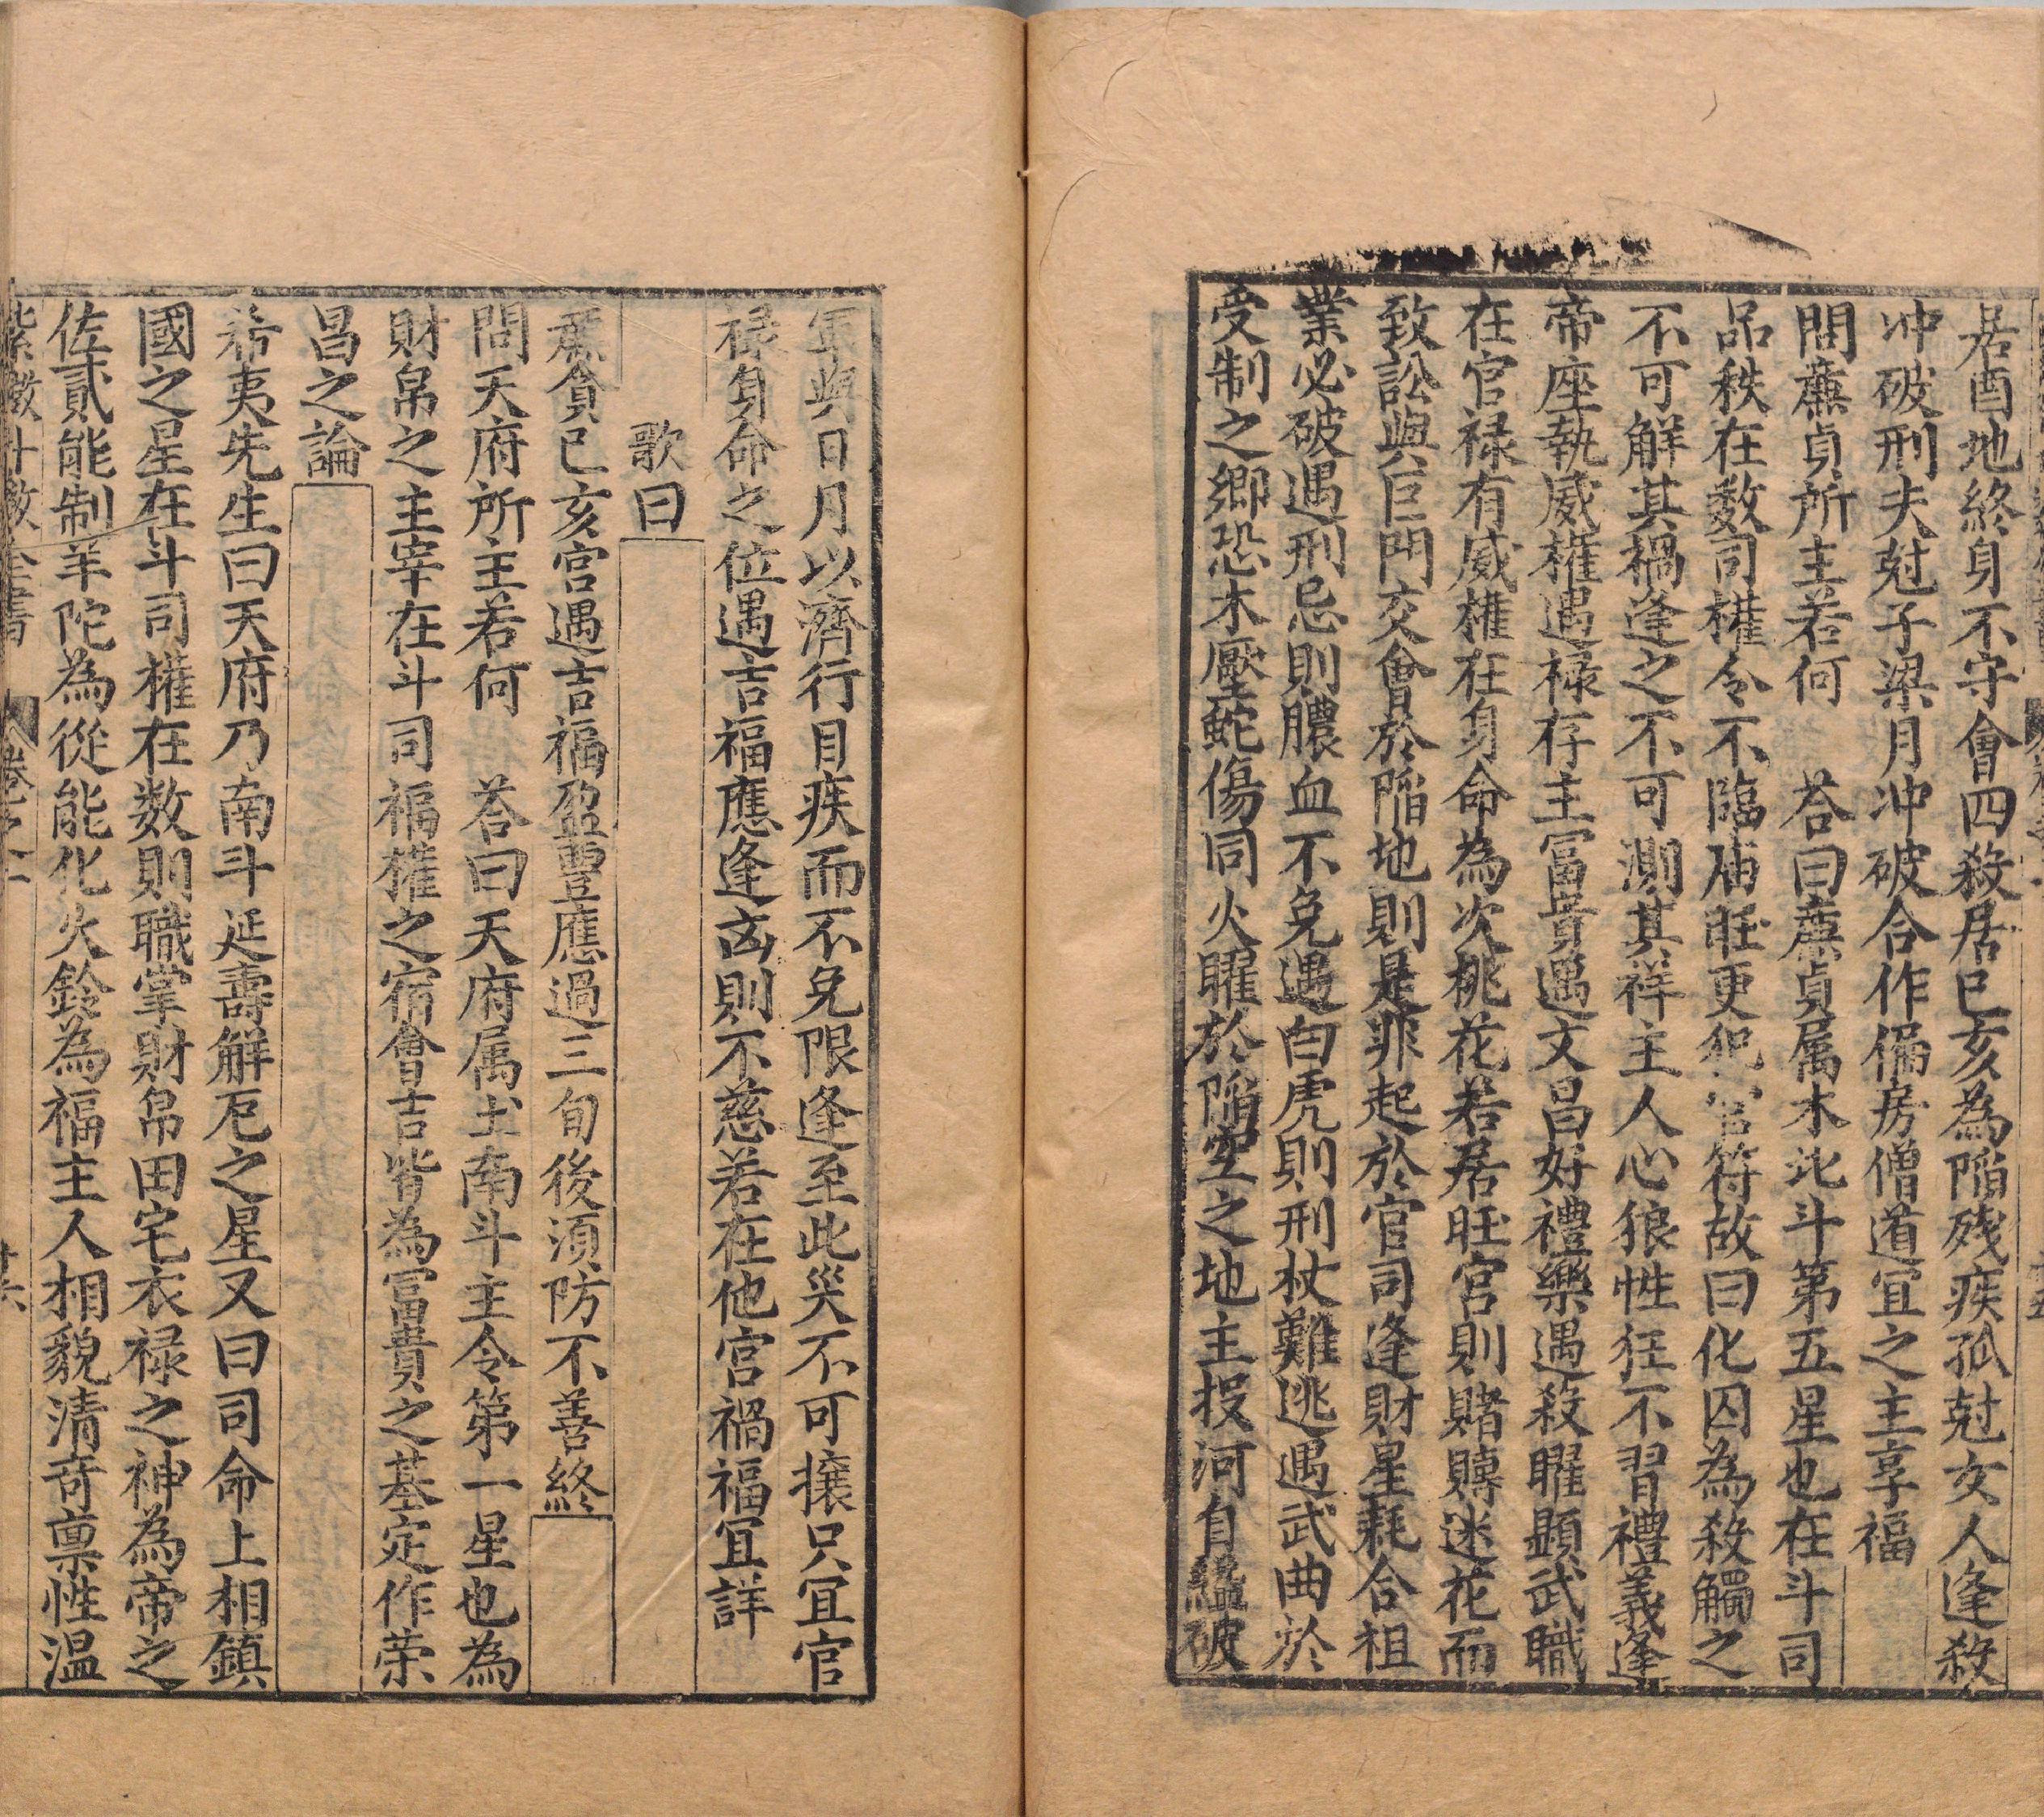 居酉地終身不守會四殺居巳亥為陷殘疾孤尅女人逢殺
冲破刑夫尅子梁月冲破合作偏房僧道宜之主享福
問蔗貞所主若何　荅曰蔗貞属木北斗第五星也在斗司
品秩在数司權令不臨庙旺更犯官符故曰化囚為殺觸之
不可解其禍逢之不可測其祥主人心狼性狂不習禮義逢
帝座執威權遇禄存主冨貴遇文昌好禮樂遇殺曜顕武職
在官禄有威權在身命為次桃花若居旺宮則賭賻迷花而
致訟與巨門交會於陷地則是非起於官司逢財星耗合祖
業必破遇刑忌則膿血不免遇白虎則刑杖難逃遇武曲於
受制之鄉恐木壓蛇傷同火曜於陷空之地主投河自縊破
軍與日月以濟行目疾而不免限逢至此災不可攘只宜官
禄身命之位遇吉福應逢凶則不慈若在他宮禍福宜詳
歌曰
蔗貪巳亥宮遇吉福盈豐應過三旬後須防不善終
問天府所主若何　荅曰天府属土南斗主令第一星也為
財帛之主宰在斗司福權之宿會吉皆為冨貴之基定作荣
昌之論
希夷先生曰天府乃南斗延壽解厄之星又曰司命上相鎮
國之星在斗司權在数則職掌財帛田宅衣禄之神為帝之
佐貳能制羊陀為從能化火鈴為福主人相貌清奇禀性温
紫微斗数全書　卷之一　廿六